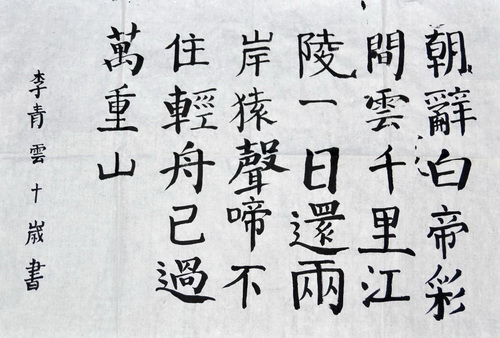 朝辭白帝彩
間雲千里江
陵一日還兩
岸猿聲啼不
住輕舟已過
萬重山
李青雲十歲書